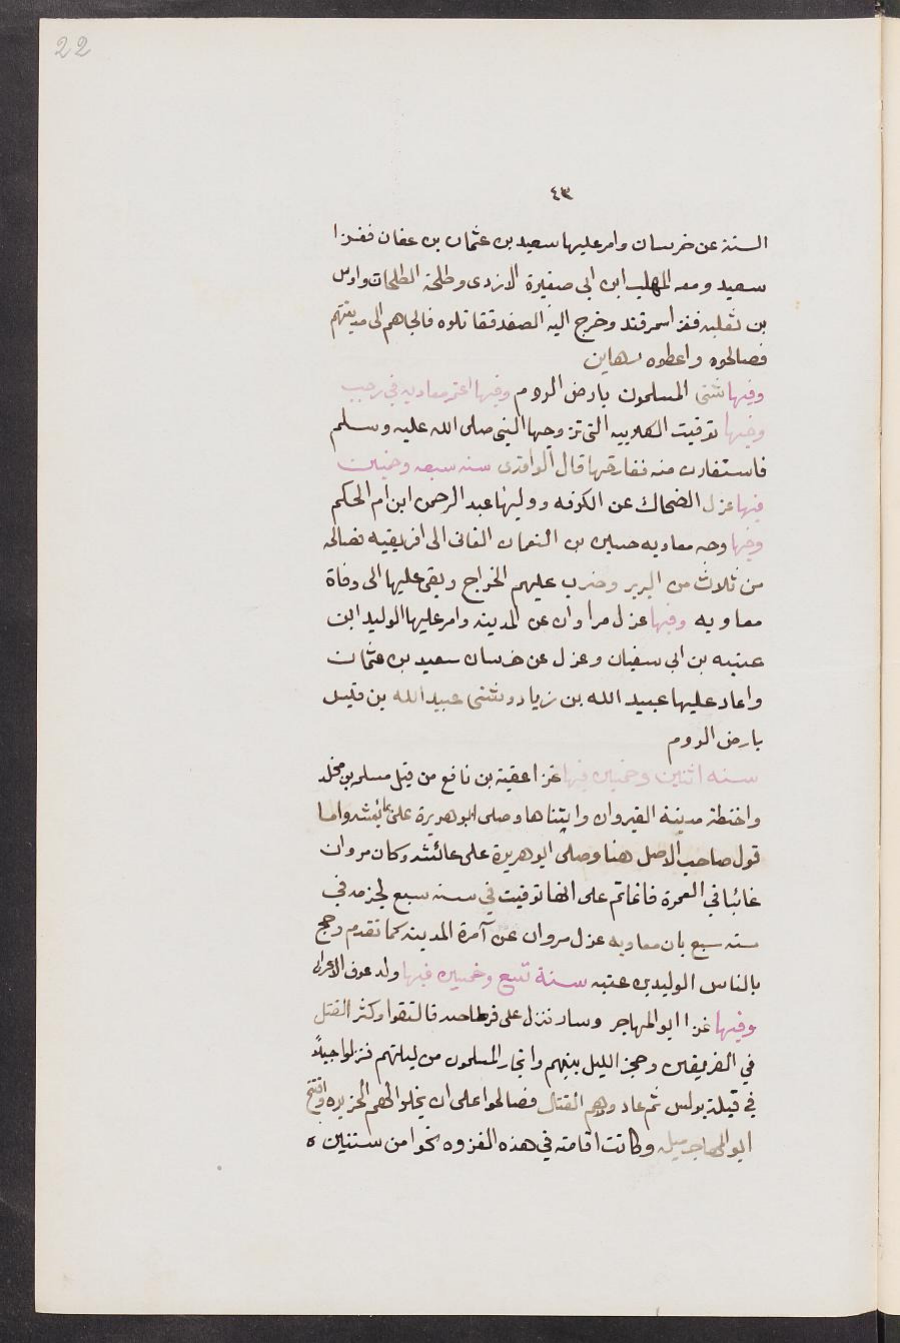 22
٤٣
السنة عن خرسان وامر عليها سعيد بن عثمان بن عفان فغزا
سعيد ومعه المهلب ابن ابى صفيرة الازدى وطلحة الطلحات واوس
بن ثعلبه فغزا سمرقند وخرج اليه الصغد فقاتلوه فالجاهم الى مدينتهم
فصالحوه واعطوه رهاين
وفيها شتى المسلمون بارض الروم وفيها اعتمر معاويه في رجب
وفيها توفيت الكلابيه التى تزوجها النبى صلى الله عليه وسلم
فاستعاذت منه ففارقها قال الواقدى سنه سبعه وخمسين
فيها عزل الضحاك عن الكوفه ووليها عبد الرحمن ابن ام الحكم
وفيها وجه معاويه حسان بن النعمان الغانى الى افريقيه فصالحه
من ثلاث من البربر وضرب عليهم الخراج وبقى عليها الى وفاة
معاويه وفيها عزل مراوان عن المدينه وامر عليها الوليد ابن
عتبه بن ابى سفيان وعزل عن خرسان سعيد بن عثمان
واعاد عليها عبيد الله بن زياد وشتى عبيد الله بن قيس
بارض الروم
سنه اثنين وخمسين فيها غزا عقبة بن نافع من قبل مسلمه بن مخلد
واختطه مدينة القيروان وابتناها وصلى ابو هريرة على عائشه واما
قول صاحب الاصل هنا وصلى ابو هريرة على عائشه وكان مروان
غائبا في العمرة فانماتم على انها توفيت في سنه سبع لجزمه في
سنه سبع بان معاويه عزل مروان عن آمرة المدينه كما تقدم وحج
بالناس الوليد بن عتبه سنة تسع وخمسين فيها ولد عوف الاعرابى
وفيها غزا ابو المهاجر وسار نزل على قرطاجنه فالتقوا وكثر القتل
في الفريقين وحجز الليل بينهم وانحاز المسلمون من ليلتهم فنزلوا جبلاً
في قبلة بولس ثم عاد وهم القتال فصالحوا على ان يخلوا لهم الجزيره وافتتح
ابو المهاجر ميله وكانت اقامته في هذه الغزوه نحوا من سنتين ه